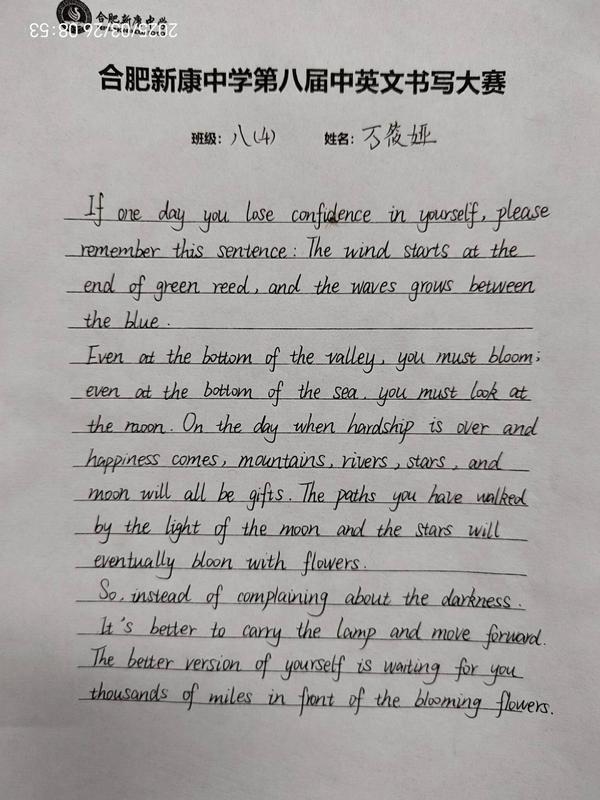 合肥新康中学
2025/03/26 08:53
合肥新康中学第八届中英文书写大赛
班级: 八(4) 姓名: 万筱娅
If one day you lose confidence in yourself, please
remember this sentence: The wind starts at the
end of green reed, and the waves grows between
the blue.
Even at the bottom of the valley, you must bloom;
even at the bottom of the sea, you must look at
the moon. On the day when hardship is over and
happiness comes, mountains, rivers, stars, and
moon will all be gifts. The paths you have walked
by the light of the moon and the stars will
eventually bloon with flowers.
So, instead of complaining about the darkness.
It's better to carry the lamp and move forward.
The better version of yourself is waiting for you
thousands of miles in front of the blooming flowers.